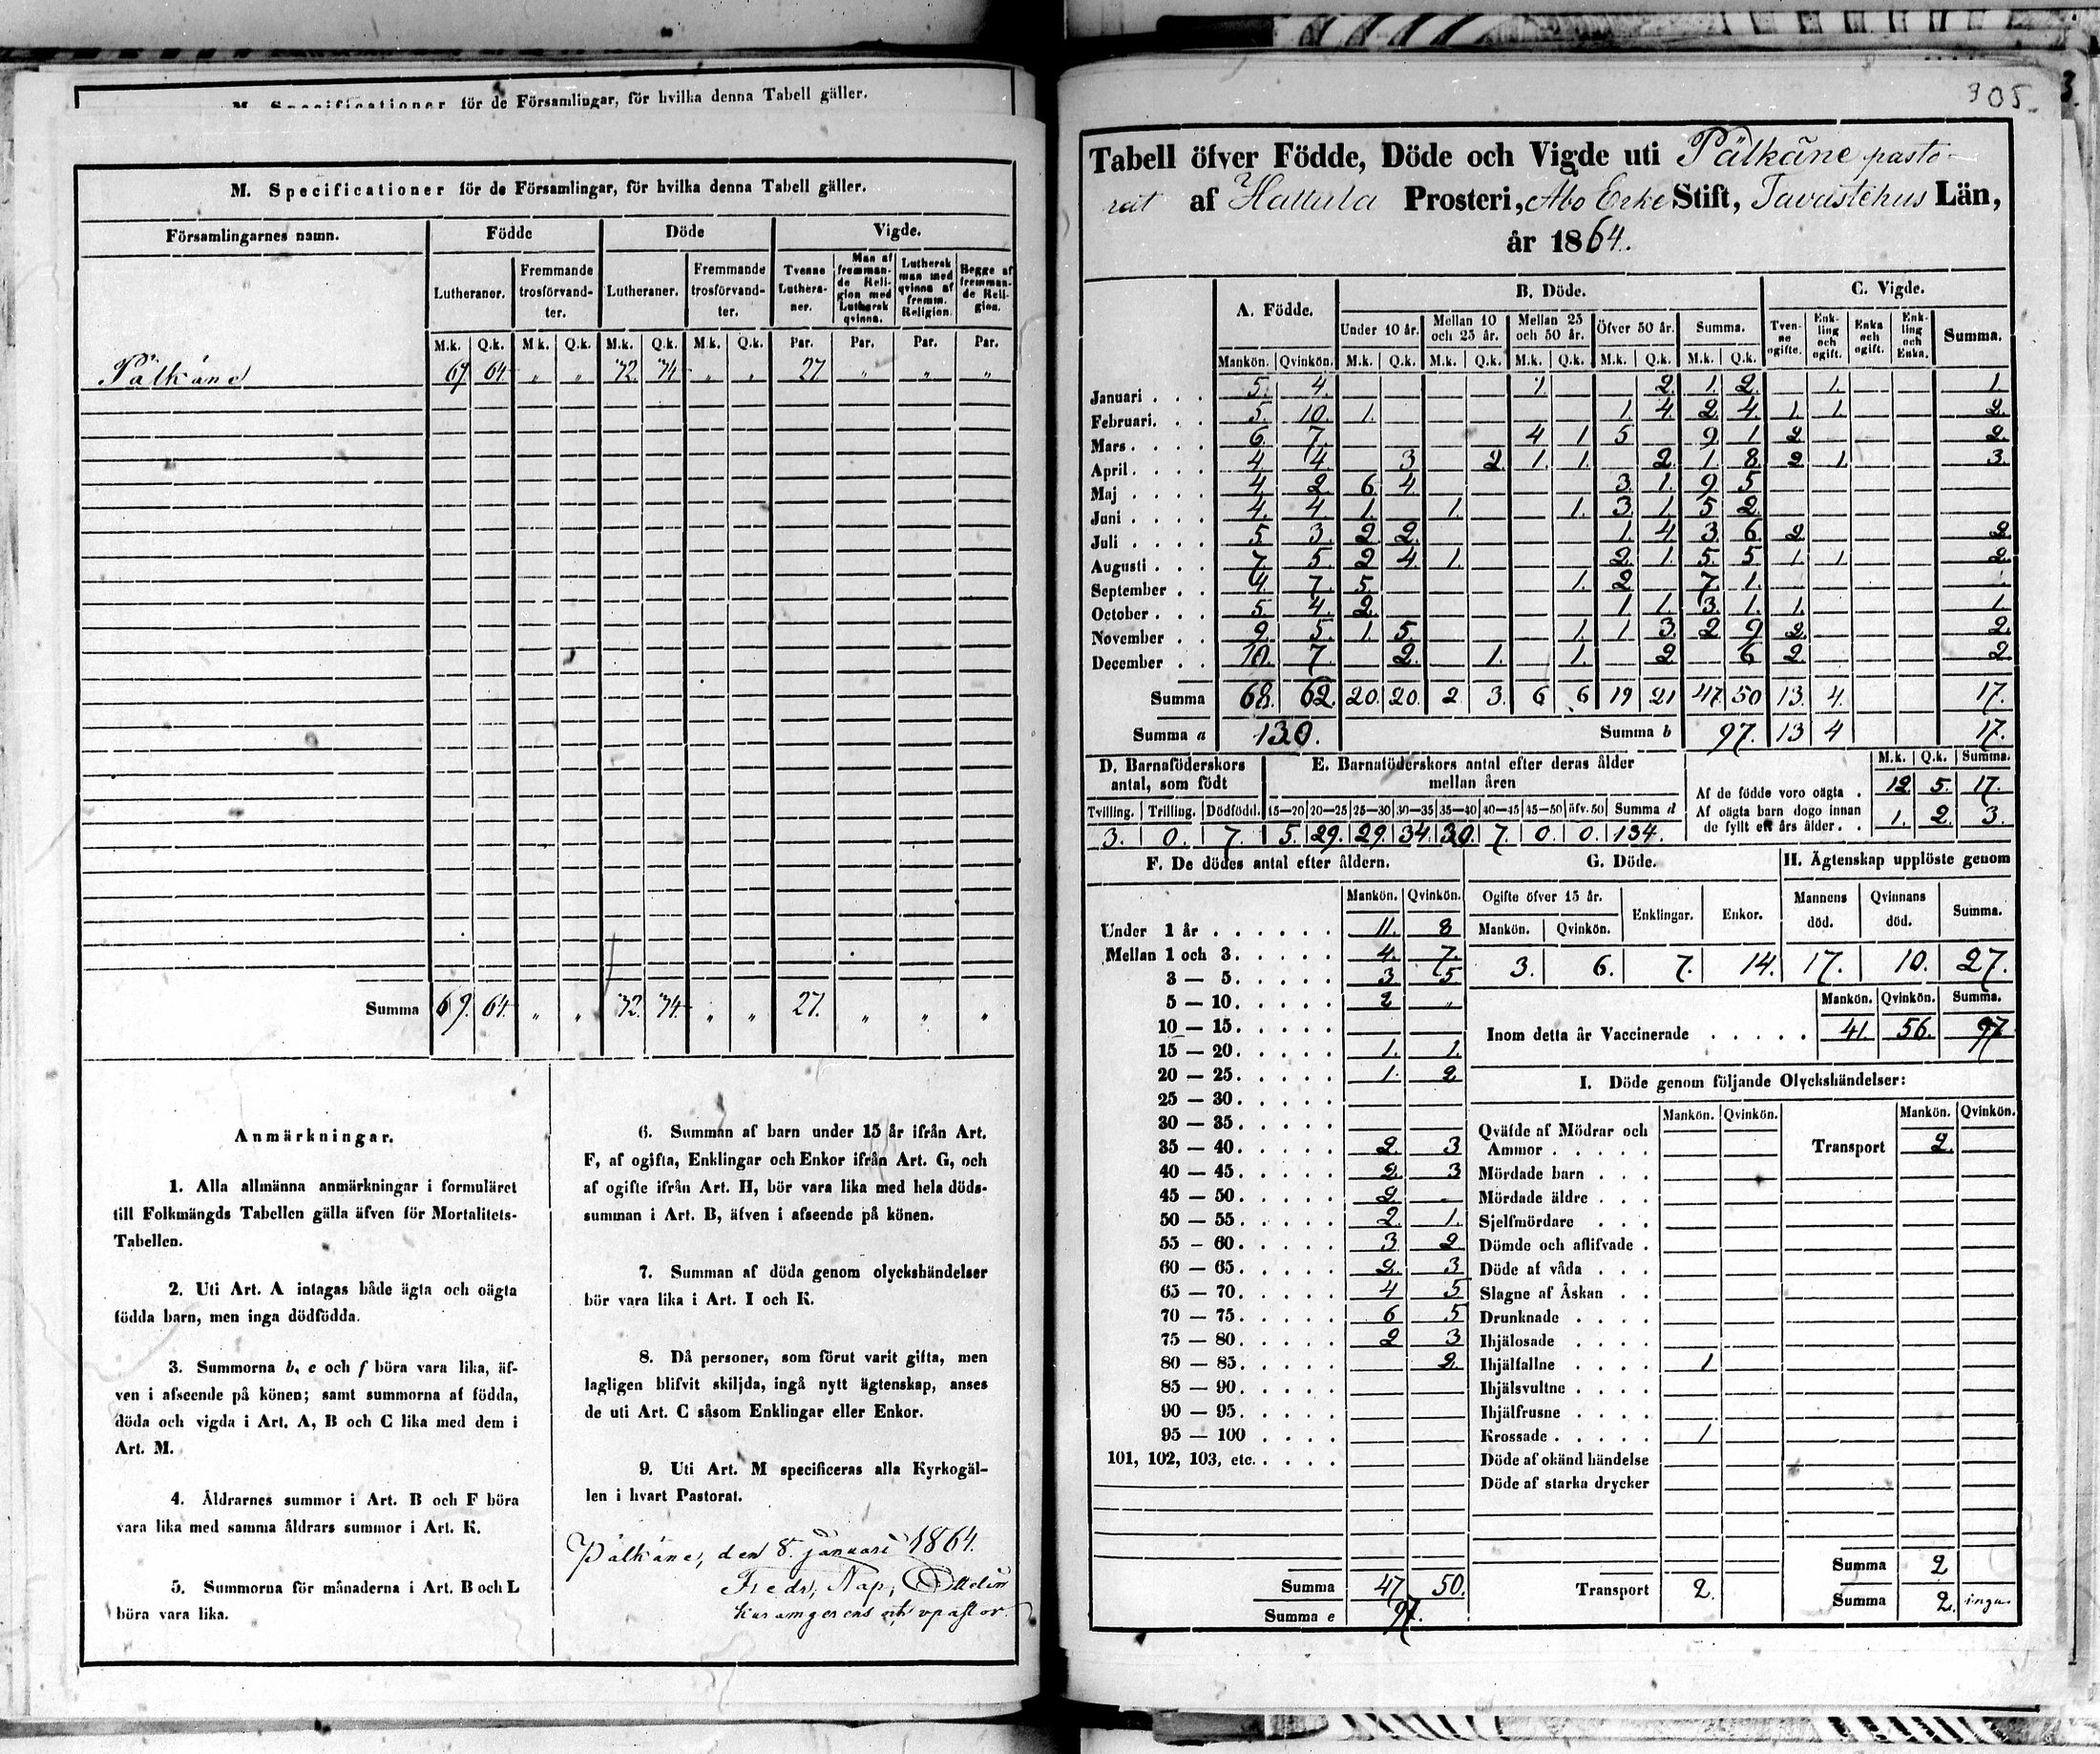 M. Specificationer för de Församlingar, för hvilka denna Tabell gäller.
M. Specificationer för de Församlingar, för hvilka denna Tabell gäller.
Församlingarnes namn. Födde Döde Vigde.
Lutheraner. Fremmande trosförvandter. Lutheraner. Fremmande trosförvandter. Tvenne Lutheraner. Man af fremmande Religion med Luthersk qvinna. Luthersk man med qvinna af fremm. Religion. Begge af fremmande Religion.
M.k. Q.k. M.k. Q.k. M.k. Q.k. M.k. Q.k. Par. Par. Par. Par.
Pälkäne 69 64 „ „ 72 74 „ „ 27 „ „ „
Summa 69. 64. „ „ 72. 74. „ „ 27. „ „ „
Anmärkningar.
1. Alla allmänna anmärkningar i formuläret
till Folkmängds Tabellen gälla äfven för Mortalitets-
Tabellen.
2. Uti Art. A intagas både ägta och oägta
födda barn, men inga dödfödda.
3. Summorna b, e och f böra vara lika, äf-
ven i afseende på könen; samt summorna af födda,
döda och vigda i Art. A, B och C lika med dem i
Art. M.
4. Åldrarnes summor i Art. B och F böra
vara lika med samma åldrars summor i Art. K.
5. Summorna för månaderna i Art. B och L
böra vara lika.
6. Summan af barn under 15 år ifrån Art.
F, af ogifta, Enklingar och Enkor ifrån Art. G, och
af ogifte ifrån Art. H, bör vara lika med hela döds-
summan i Art. B, äfven i afseende på könen.
7. Summan af döda genom olyckshändelser
bör vara lika i Art. I och K.
8. Då personer, som förut varit gifta, men
lagligen blifvit skiljda, ingå nytt ägtenskap, anses
de uti Art. C såsom Enklingar eller Enkor.
9. Uti Art. M specificeras alla Kyrkogäl-
len i hvart Pastorat.
Pälkäne, den 8. januari 1864.
Fredr. Nap.
305.
Tabell öfver Födde, Döde och Vigde uti Pälkäne pasto-
rat af Hattula Prosteri, Åbo Erke Stift, Tavastehus Län,
år 1864.
A. Födde. B. Döde. C. Vigde.
Under 10 år. Mellan 10 och 25 år. Mellan 25 och 50 år. Öfver 50 år. Summa. Tvenne ogifte. Enkling och ogift. Enka och ogift. Enkling och Enka. Summa.
Mankön. Qvinkön. M.k. Q.k. M.k. Q.k. M.k. Q.k. M.k. Q.k. M.k. Q.k.
Januari . . . 5. 4. 1. 2. 1. 2. 1. 1.
Februari. . . 5. 10. 1. 1. 4. 2. 4. 1. 1. 2.
Mars . . . . 6. 7. 4 1 5 9 1 2 2.
April . . . . 4. 4. 3 2. 1. 1. 2. 1. 8. 2. 1. 3.
Maj . . . . 4. 2. 6. 4. 3. 1. 9. 5.
Juni . . . . 4. 4 1. 1. 1. 3. 1 5 2.
Juli . . . . 5 3. 2 2. 1. 4 3 6 2 2.
Augusti . . . 7. 5. 2 4. 1. 2. 1. 5. 5. 1. 1. 2.
September . . 4. 7. 5. 1. 2 7. 1.
October . . . 5. 4. 2. 1 1. 3. 1. 1. 1.
November . . 9. 5. 1. 5. 1. 1 3. 2 9 2. 2.
December . . 10. 7. 2. 1. 1. 2 6 2. 2.
Summa 68. 62. 20. 20. 2 3. 6 6 19 21 47 50 13. 4. 17.
Summa a 130. Summa b 97. 13 4 17.
D. Barnaföderskors antal, som födt
E. Barnaföderskors antal efter deras ålder mellan åren
M.k. Q.k. Summa.
Tvilling. Trilling. Dödfödd. 15—20 20—25 25—30 30—35 35—40 40—45 45—50 öfv. 50 Summa d
3. 0. 7. 5. 29. 29. 34. 30. 7. 0. 0. 134.
Af de födde voro oägta . 12 5. 17.
Af oägta barn dogo innan
de fyllt ett års ålder . . 1. 2. 3.
F. De dödes antal efter åldern.
Mankön. Qvinkön.
Under 1 år . . . . . . 11. 8
Mellan 1 och 3. . . . . 4. 7.
3 — 5. . . . . 3. 5
5 — 10. . . . . 2 „
10 — 15. . . . .
15 — 20. . . . . 1. 1.
20 — 25. . . . . 1. 2
25 — 30. . . . .
30 — 35. . . . .
35 — 40. . . . . 2. 3
40 — 45. . . . . 2. 3
45 — 50. . . . . 2. -
50 — 55. . . . . 2. 1.
55 — 60. . . . . 3 2
60 — 65. . . . . 2. 3
65 — 70. . . . . 4 5
70 — 75. . . . . 6 5
75 — 80. . . . . 2 3
80 — 85. . . . . 2.
85 — 90. . . . .
90 — 95. . . . .
95 — 100 . . . .
101, 102, 103, etc. . . . .
Summa 47 50.
Summa e 97.
G. Döde.
Ogifte öfver 15 år. Enklingar. Enkor.
Mankön. Qvinkön.
3. 6. 7. 14.
H. Ägtenskap upplöste genom
Mannens död. Qvinnans död. Summa.
17. 10. 27.
Mankön. Qvinkön. Summa.
Inom detta år Vaccinerade . . . . . 41. 56. 97
I. Döde genom följande Olyckshändelser:
Mankön. Qvinkön. Mankön. Qvinkön.
Qväfde af Mödrar och
Ammor . . . . . Transport 2.
Mördade barn . . .
Mördade äldre . . .
Sjelfmördare . . .
Dömde och aflifvade .
Döde af våda . . .
Slagne af Åskan . .
Drunknade . . . .
Ihjälosade . . . .
Ihjälfallne . . . . 1
Ihjälsvultne . . . .
Ihjälfrusne . . . .
Krossade . . . . . 1
Döde af okänd händelse
Döde af starka drycker
Summa 2
Transport 2. Summa 2. inga